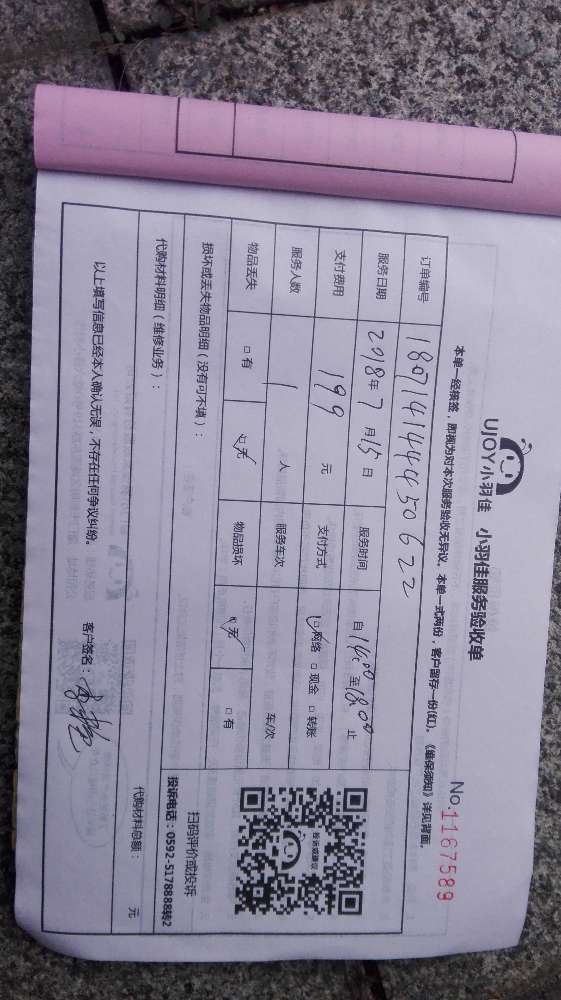 UJOY小羽佳 小羽佳服务验收单
No.1167589
本单一经核签，即视为对本次服务验收无异议。本单一式两份，客户留存一份(红)。《维保须知》详见背面。
订单编号 180714144450622
服务日期 2018年7月15日 服务时间 自14:00至18:00止
支付费用 199 元 支付方式 ☑网络 □现金 □转账
服务人数 1 人 服务车次 车/次
物品丢失 □有 ☑无 物品损坏 ☑无 □有
损坏或丢失物品明细（没有可不填）：
投诉或建议
扫码评价或投诉
投诉电话：0592-5178888转2
代购材料明细（维修业务）：
代购材料总额： 元
以上填写信息已经本人确认无误，不存在任何争议纠纷。
客户签名：